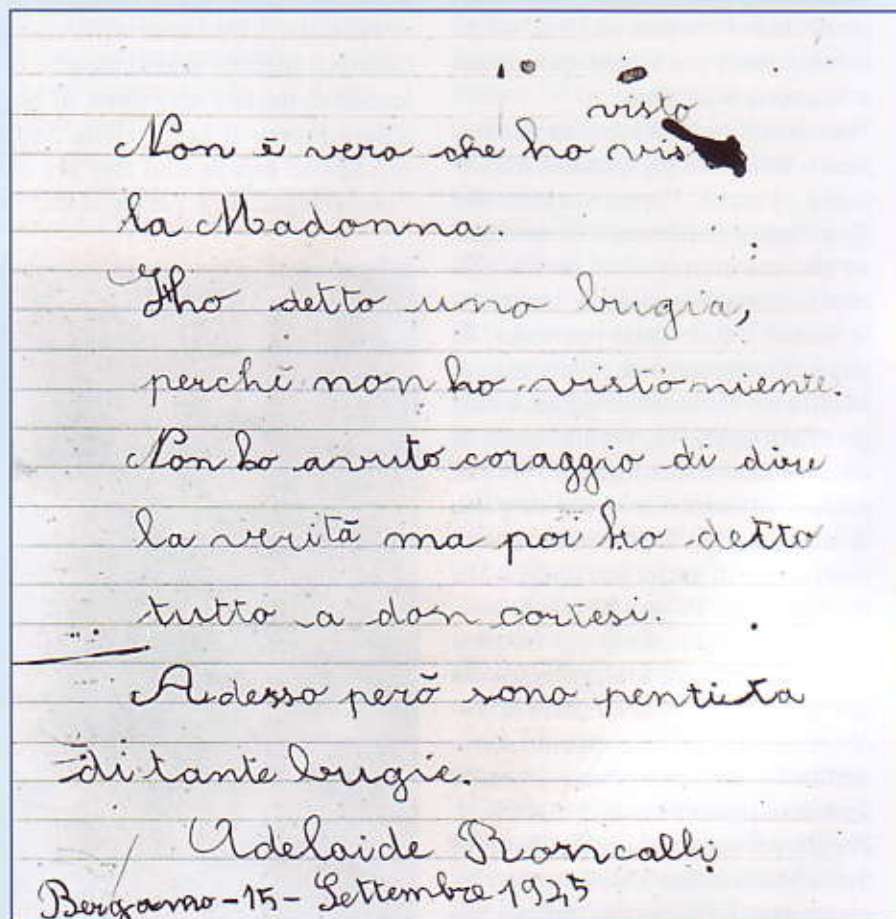 visto
Non è vero che ho vis
la Madonna.
Ho detto una bugia,
perchè non ho visto niente.
Non ho avuto coraggio di dire
la verità ma poi ho detto
tutto a don cortesi.
Adesso però sono pentita
di tante bugie.
Adelaide Roncalli
Bergamo-15-Settembre 1945